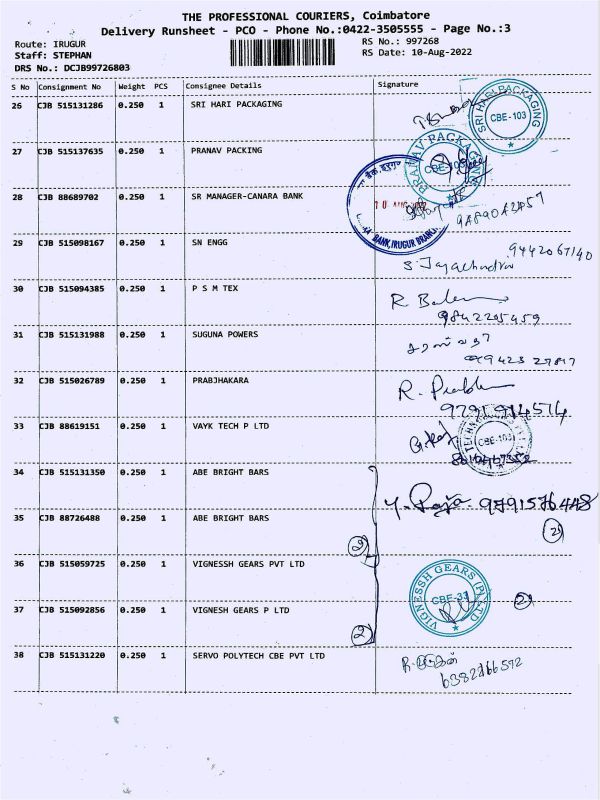 THE PROFESSIONAL COURIERS, Coimbatore
Delivery Runsheet - PCO - Phone No.:0422-3505555 - Page No.:3
Route: IRUGUR
Staff: STEPHAN
DRS No.: DCJB99726803
RS No.: 997268
RS Date: 10-Aug-2022
S No Consignment No Weight PCS Consignee Details Signature
26 CJB 515131286 0.250 1 SRI HARI PACKAGING
SRI HARI PACKAGING CBE-103
27 CJB 515137635 0.250 1 PRANAV PACKING
PRANAV PACKING
28 CJB 88689702 0.250 1 SR MANAGER-CANARA BANK
BANK, IRUGUR BRANCH
29 CJB 515098167 0.250 1 SN ENGG
9442067140
S. Jayachandran
30 CJB 515094385 0.250 1 P S M TEX
9842205459
31 CJB 515131988 0.250 1 SUGUNA POWERS
32 CJB 515026789 0.250 1 PRABJHAKARA
9791914514
33 CJB 88619151 0.250 1 VAYK TECH P LTD
CBE-103
34 CJB 515131350 0.250 1 ABE BRIGHT BARS
Y. Raja 9791576448
35 CJB 88726488 0.250 1 ABE BRIGHT BARS
2
2
36 CJB 515059725 0.250 1 VIGNESSH GEARS PVT LTD
VIGNESSH GEARS (P) LTD CBE-33
2
37 CJB 515092856 0.250 1 VIGNESH GEARS P LTD
2
38 CJB 515131220 0.250 1 SERVO POLYTECH CBE PVT LTD
6382266572